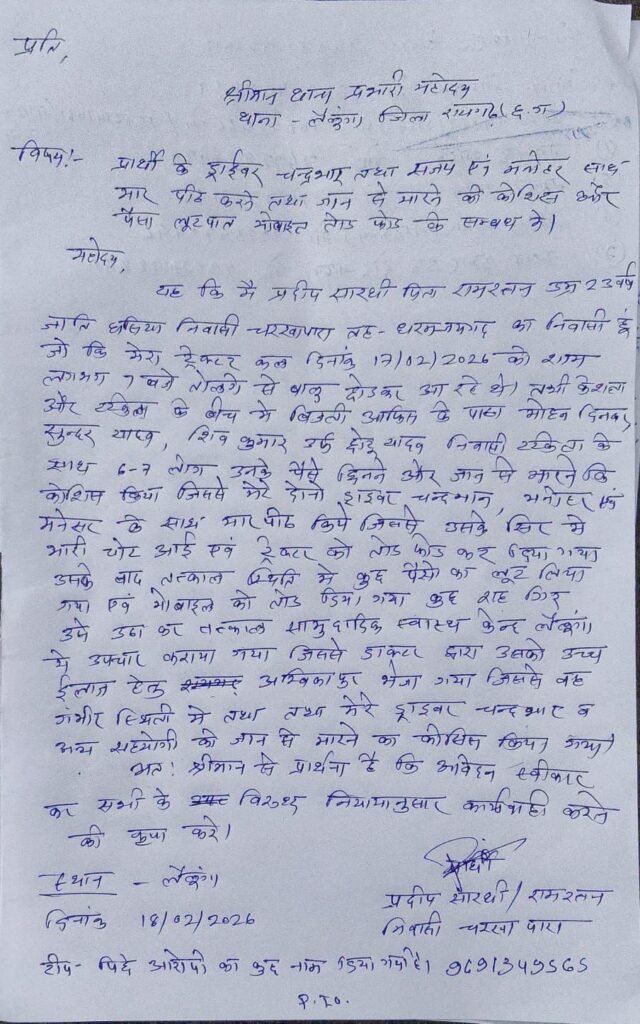 प्रति,
श्रीमान थाना प्रभारी महोदय
थाना - लैलूंगा, जिला रायगढ़ (छ.ग)
विषय:- प्रार्थी के ड्राईवर चन्द्रभान तथा संजय एवं मनोहर साथ
मार पीट करने तथा जान से मारने की कोशिस और
पैसा लूटपात मोबाइल तोड फोड के सम्बध में।
महोदय,
यह कि मै प्रदीप सारथी पिता रामरतन उम्र 23 वर्ष
जाति घसिया निवासी चरखापारा तह- धरमजयगढ का निवासी हूं
जो कि मेरा ट्रेक्टर कल दिनांक 17/02/2026 को शाम
लगभग 7 बजे तोलगे से बालु छोडकर आ रहे थे। तभी केशला
और टस्केला के बीच मे बिजली आफिस के पास मोहन दिनकर,
सुन्दर यादव, शिव कुमार उर्फ छोटू यादव निवासी टस्केला के
साथ 6-7 लोग उनके पैसे छिनने और जान से मारने कि
कोशिस किया जिससे मेरे दोनो ड्राइवर चन्द्रभान, मनोहर एवं
मनेसर के साथ मार पीट किये जिससे उसके सिर मे
भारी चोट आई एवं ट्रेक्टर को तोड फोड कर दिया गया
उसके बाद तत्काल स्थिति मे कुछ पैसो का लूट लिया
गया एवं मोबाइल को तोड दिया गया कुछ राह गिर
उसे उठा कर तत्काल सामुदायिक स्वास्थ केन्द्र लैलूंगा
मे उपचार कराया गया जिससे डाक्टर द्वारा उसको उच्च
ईलाज हेतु अम्बिकापुर भेजा गया जिससे वह
गंभीर स्थिती मे तथा तथा मेरे ड्राइवर चन्द्रभान व
अन्य सहयोगी को जान से मारने का कोसिस किया गया।
अत: श्रीमान से प्रार्थना है कि आवेदन स्वीकार
कर सभी के विरुध नियामानुसार कार्यवाही करने
की कृपा करे।
स्थान - लैलूंगा
प्रार्थी
प्रदीप सारथी / रामरतन
दिनांक 18/02/2026
निवासी चरखा पारा
टीप- पिछे आरोपी का कुछ नाम दिया गया है। 9691349565
P.T.O.